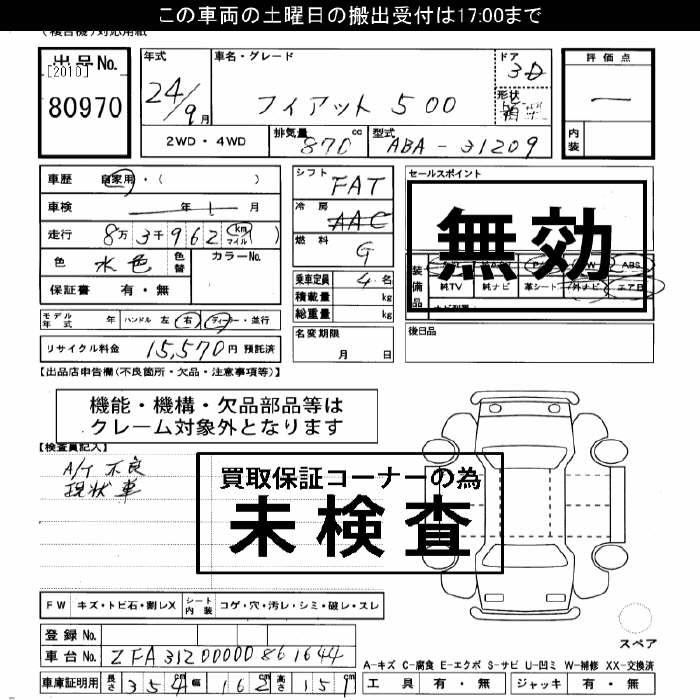 この車両の土曜日の搬出受付は17:00まで
(複合機)対応用紙
出品No.
[2010]
80970
年式
24/9月
車名・グレード
フィアット 500
ドア
3D
形状
評価点
内装
2WD・4WD
排気量
870cc
型式
ABA-31209
車歴 自家用・( )
車検 年 月
走行 8万3千962(km マイル)
色 水色 色替 カラーNo.
保証書 有・無
モデル年式 年 ハンドル 左 右 ディーラー・並行
リサイクル料金 15,570円 預託済
シフト FAT
冷房 AAC
燃料 G
乗車定員 4名
積載量 kg
総重量 kg
名変期限
月 日
セールスポイント
無効
装備品
ABS
純TV 純ナビ 革シート 外ナビ エアB
後日品
【出品店申告欄(不良箇所・欠品・注意事項等)】
機能・機構・欠品部品等は
クレーム対象外となります
【検査員記入】
A/T 不良
現状車
買取保証コーナーの為
未検査
FW キズ・トビ石・割レX シート内装 コゲ・穴・汚レ・シミ・破レ・スレ
登録No.
車台No. ZFA31200000861644
車庫証明用 長さ 354cm 幅 162cm 高さ 151cm
スペア
A-キズ C-腐食 E-エクボ S-サビ U-凹ミ W-補修 XX-交換済
工具 有・無 ジャッキ 有・無